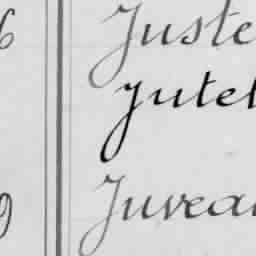 Juste
Jutel
Juveau